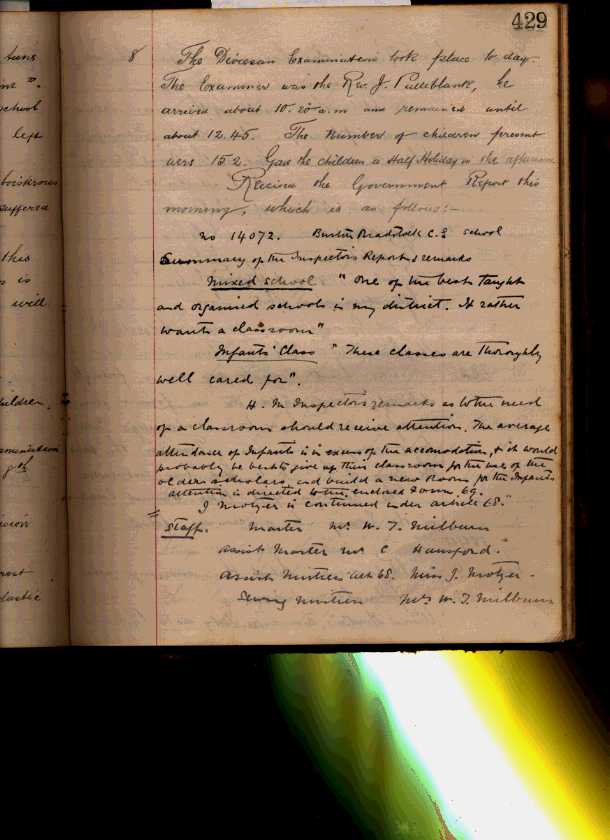 429
tians
me".
school
left
boisterous
suffered
this
s is
will
children
8 The Diocesan Examination took place to day.
The Examiner was the Rev. J. Pulleblank, he
arrived about 10.20 a.m and remained until
about 12.45. The number of children present
were 152. Gave the children a Half Holiday in the afternoon
Received the Government Report this
morning, which is as follows:-
no 14072. Burton Bradstock C.E school
Summary of the Inspectors Report & remarks
Mixed school "One of the best taught
and organised schools in my district. It rather
wants a classroom"
Infants Class "These classes are thoroughly
well cared for".
H. M Inspectors remarks as to the need
of a classroom should receive attention. The average
attendance of Infants is in excess of the accomodation, & it would
probably be best to give up their classroom for the use of the
olders scholars and build a new Room for the Infants
attention is directed to the enclosed Form 69.
J Motzer is continued under article 68."
Staff. Master Mr W. T. Milburn
Assist Master Mr C Hansford.
Assist Mistress Art 68. Miss J. Motzer.
Sewing Mistress Mrs W. T. Milburn